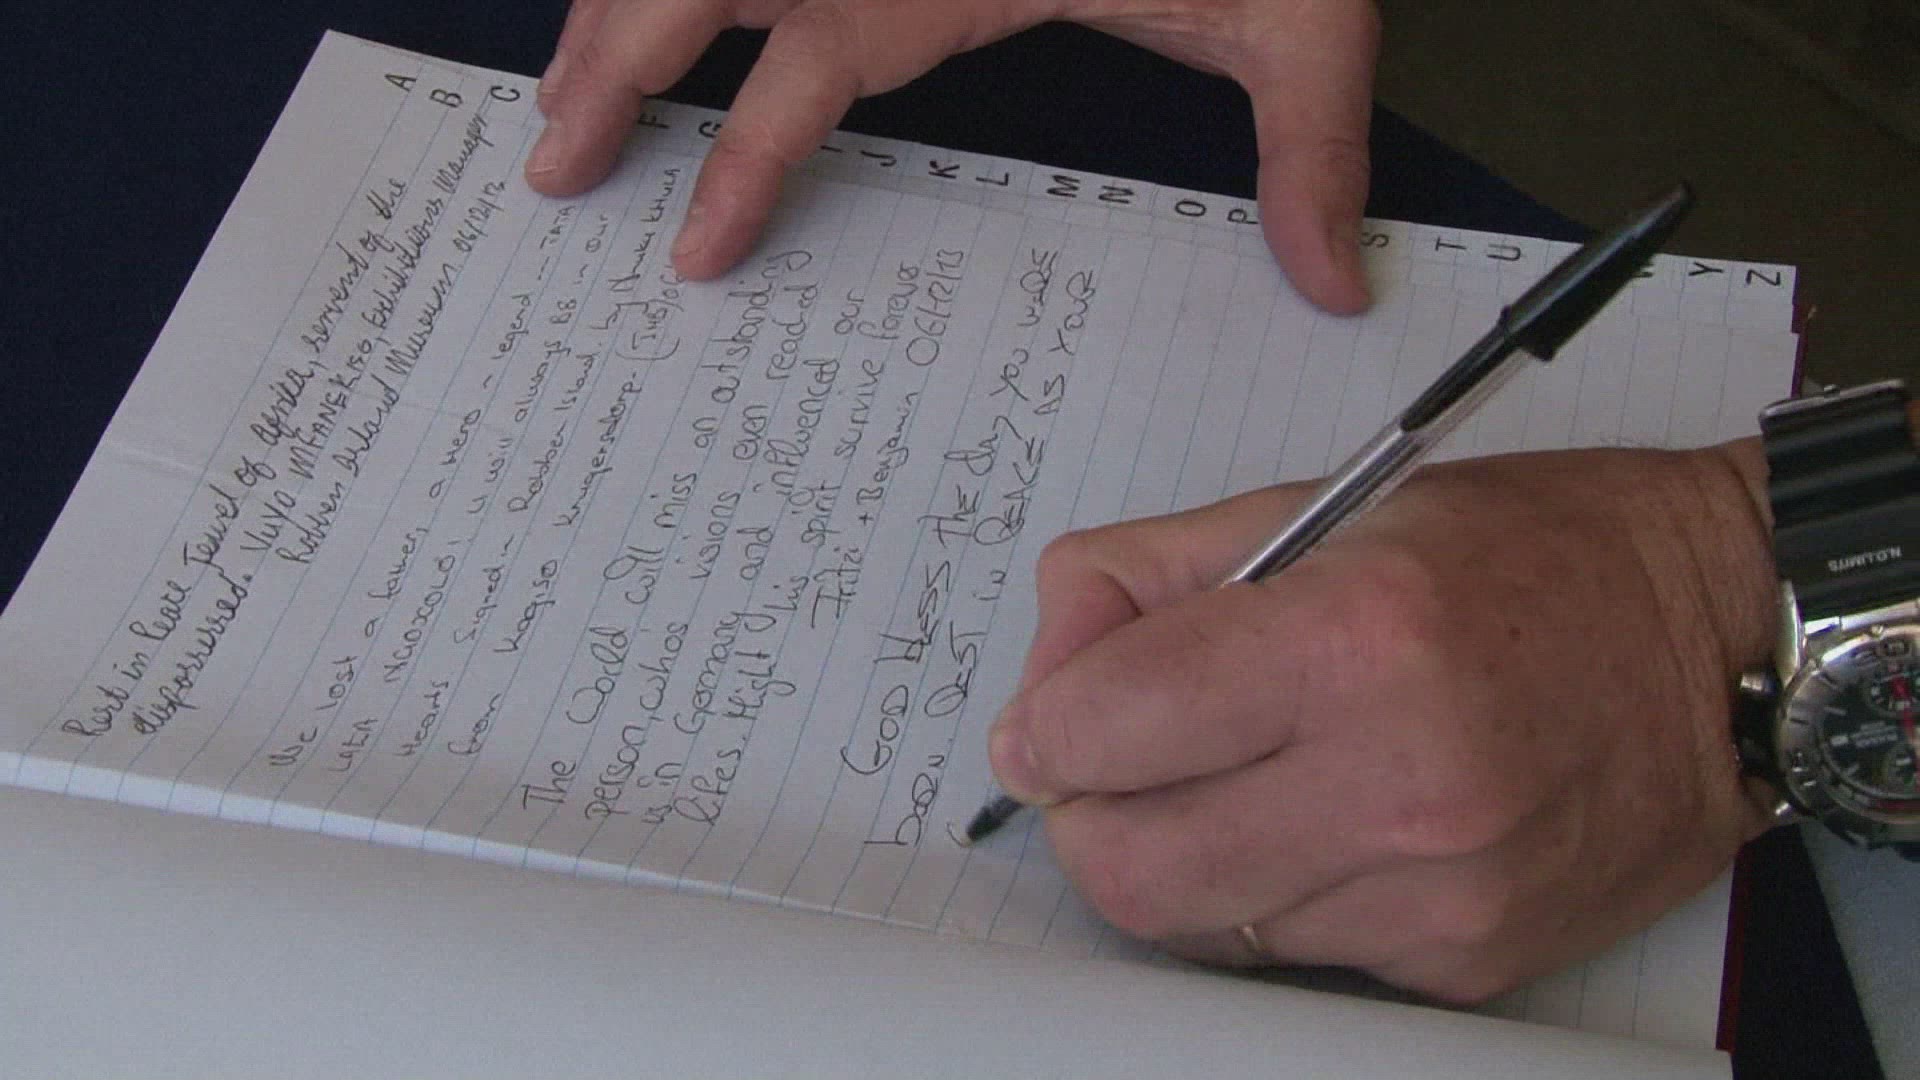 A
B
C
F
G
I
J
K
L
M
N
O
P
S
T
U
Y
Z
Rest in Peace Jewel of Africa, servent of the
dispossessed. Vuyo MFANEKISO, Exhibitions Manager
Robben Island Museum 06/12/13
We lost a father, a Hero ~ legend --- TATA
LALA NGOXOLO, U will always BB in our
Hearts Signed in Robben Island. by
from Kagiso Krugersdorp- (JHB) 06
The World will miss an outstanding
person, who's visions even reached
us in Germany and influenced our
lifes. Might his spirit survive forever
Fritzi + Benjamin 06/12/13
GOD BLESS THE DAY YOU WERE
born. REST in PEACE AS YOUR
N.O.LIMITS